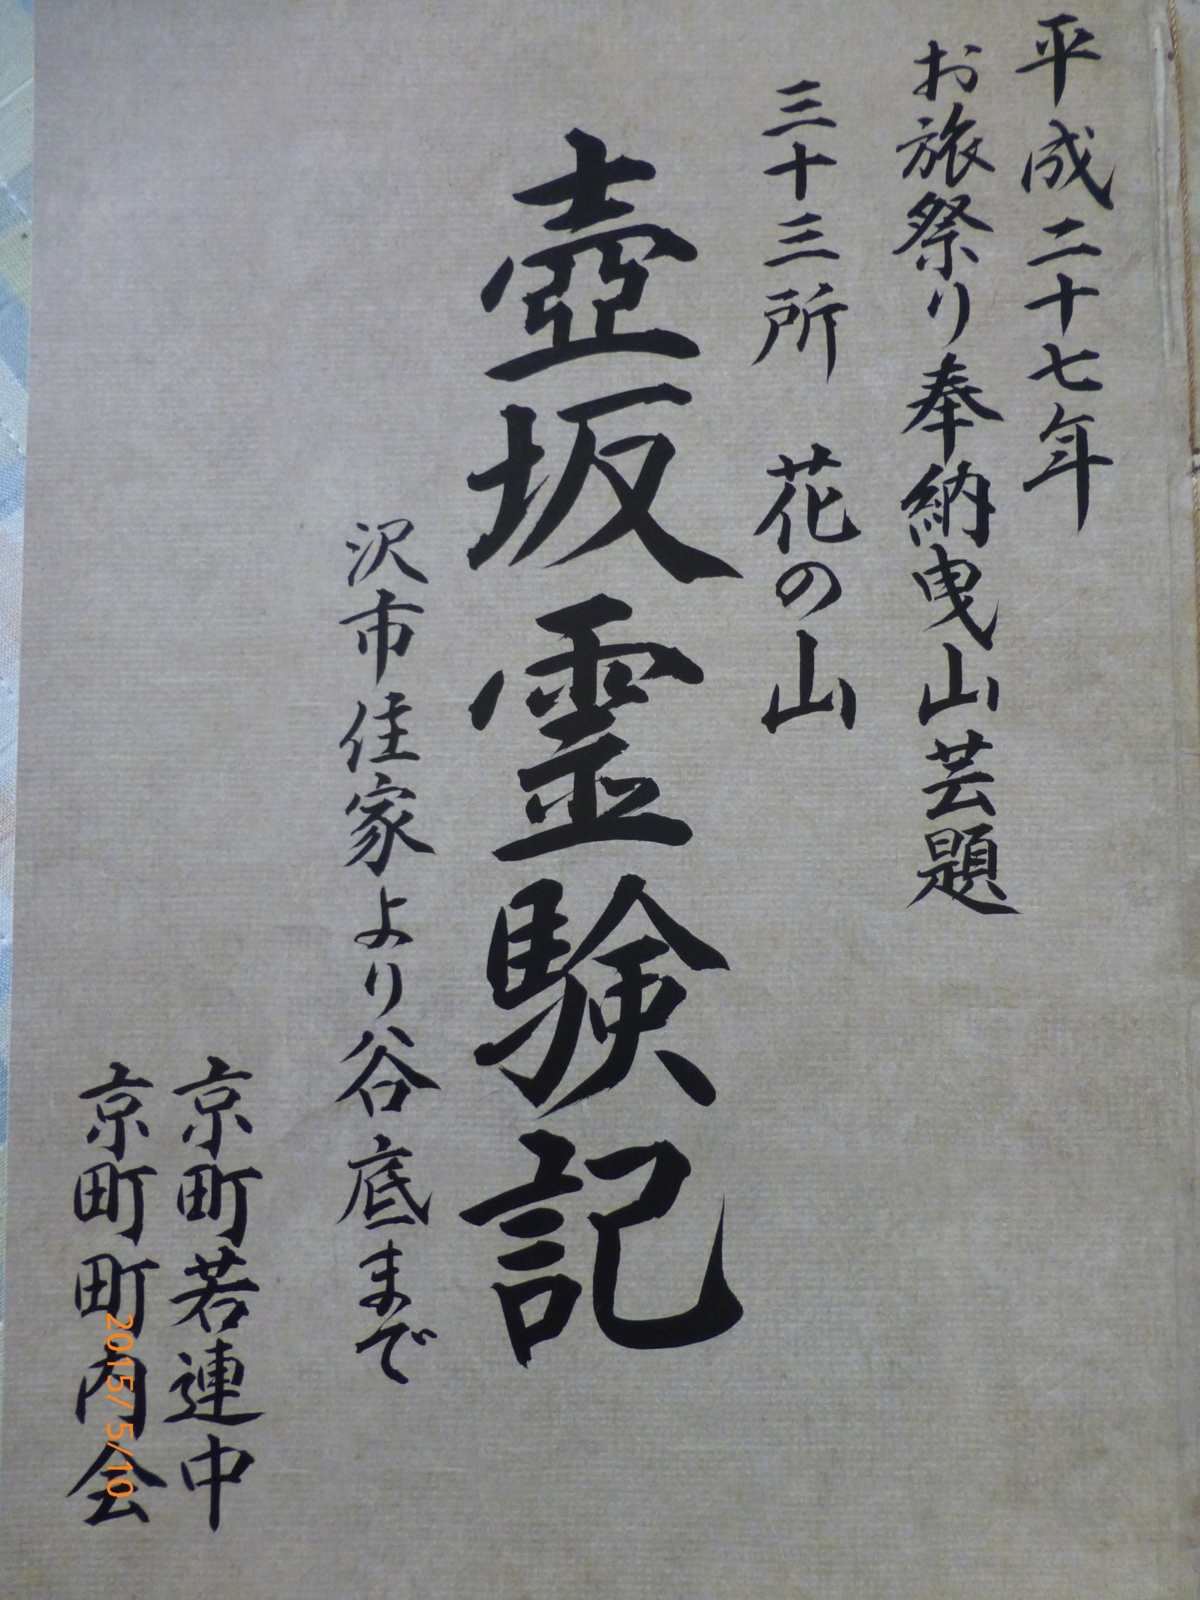 平成二十七年
お旅祭り奉納曳山芸題
三十三所 花の山
壺坂霊験記
沢市住家より谷底まで
京町若連中
京町町内会
2015/ 5/10